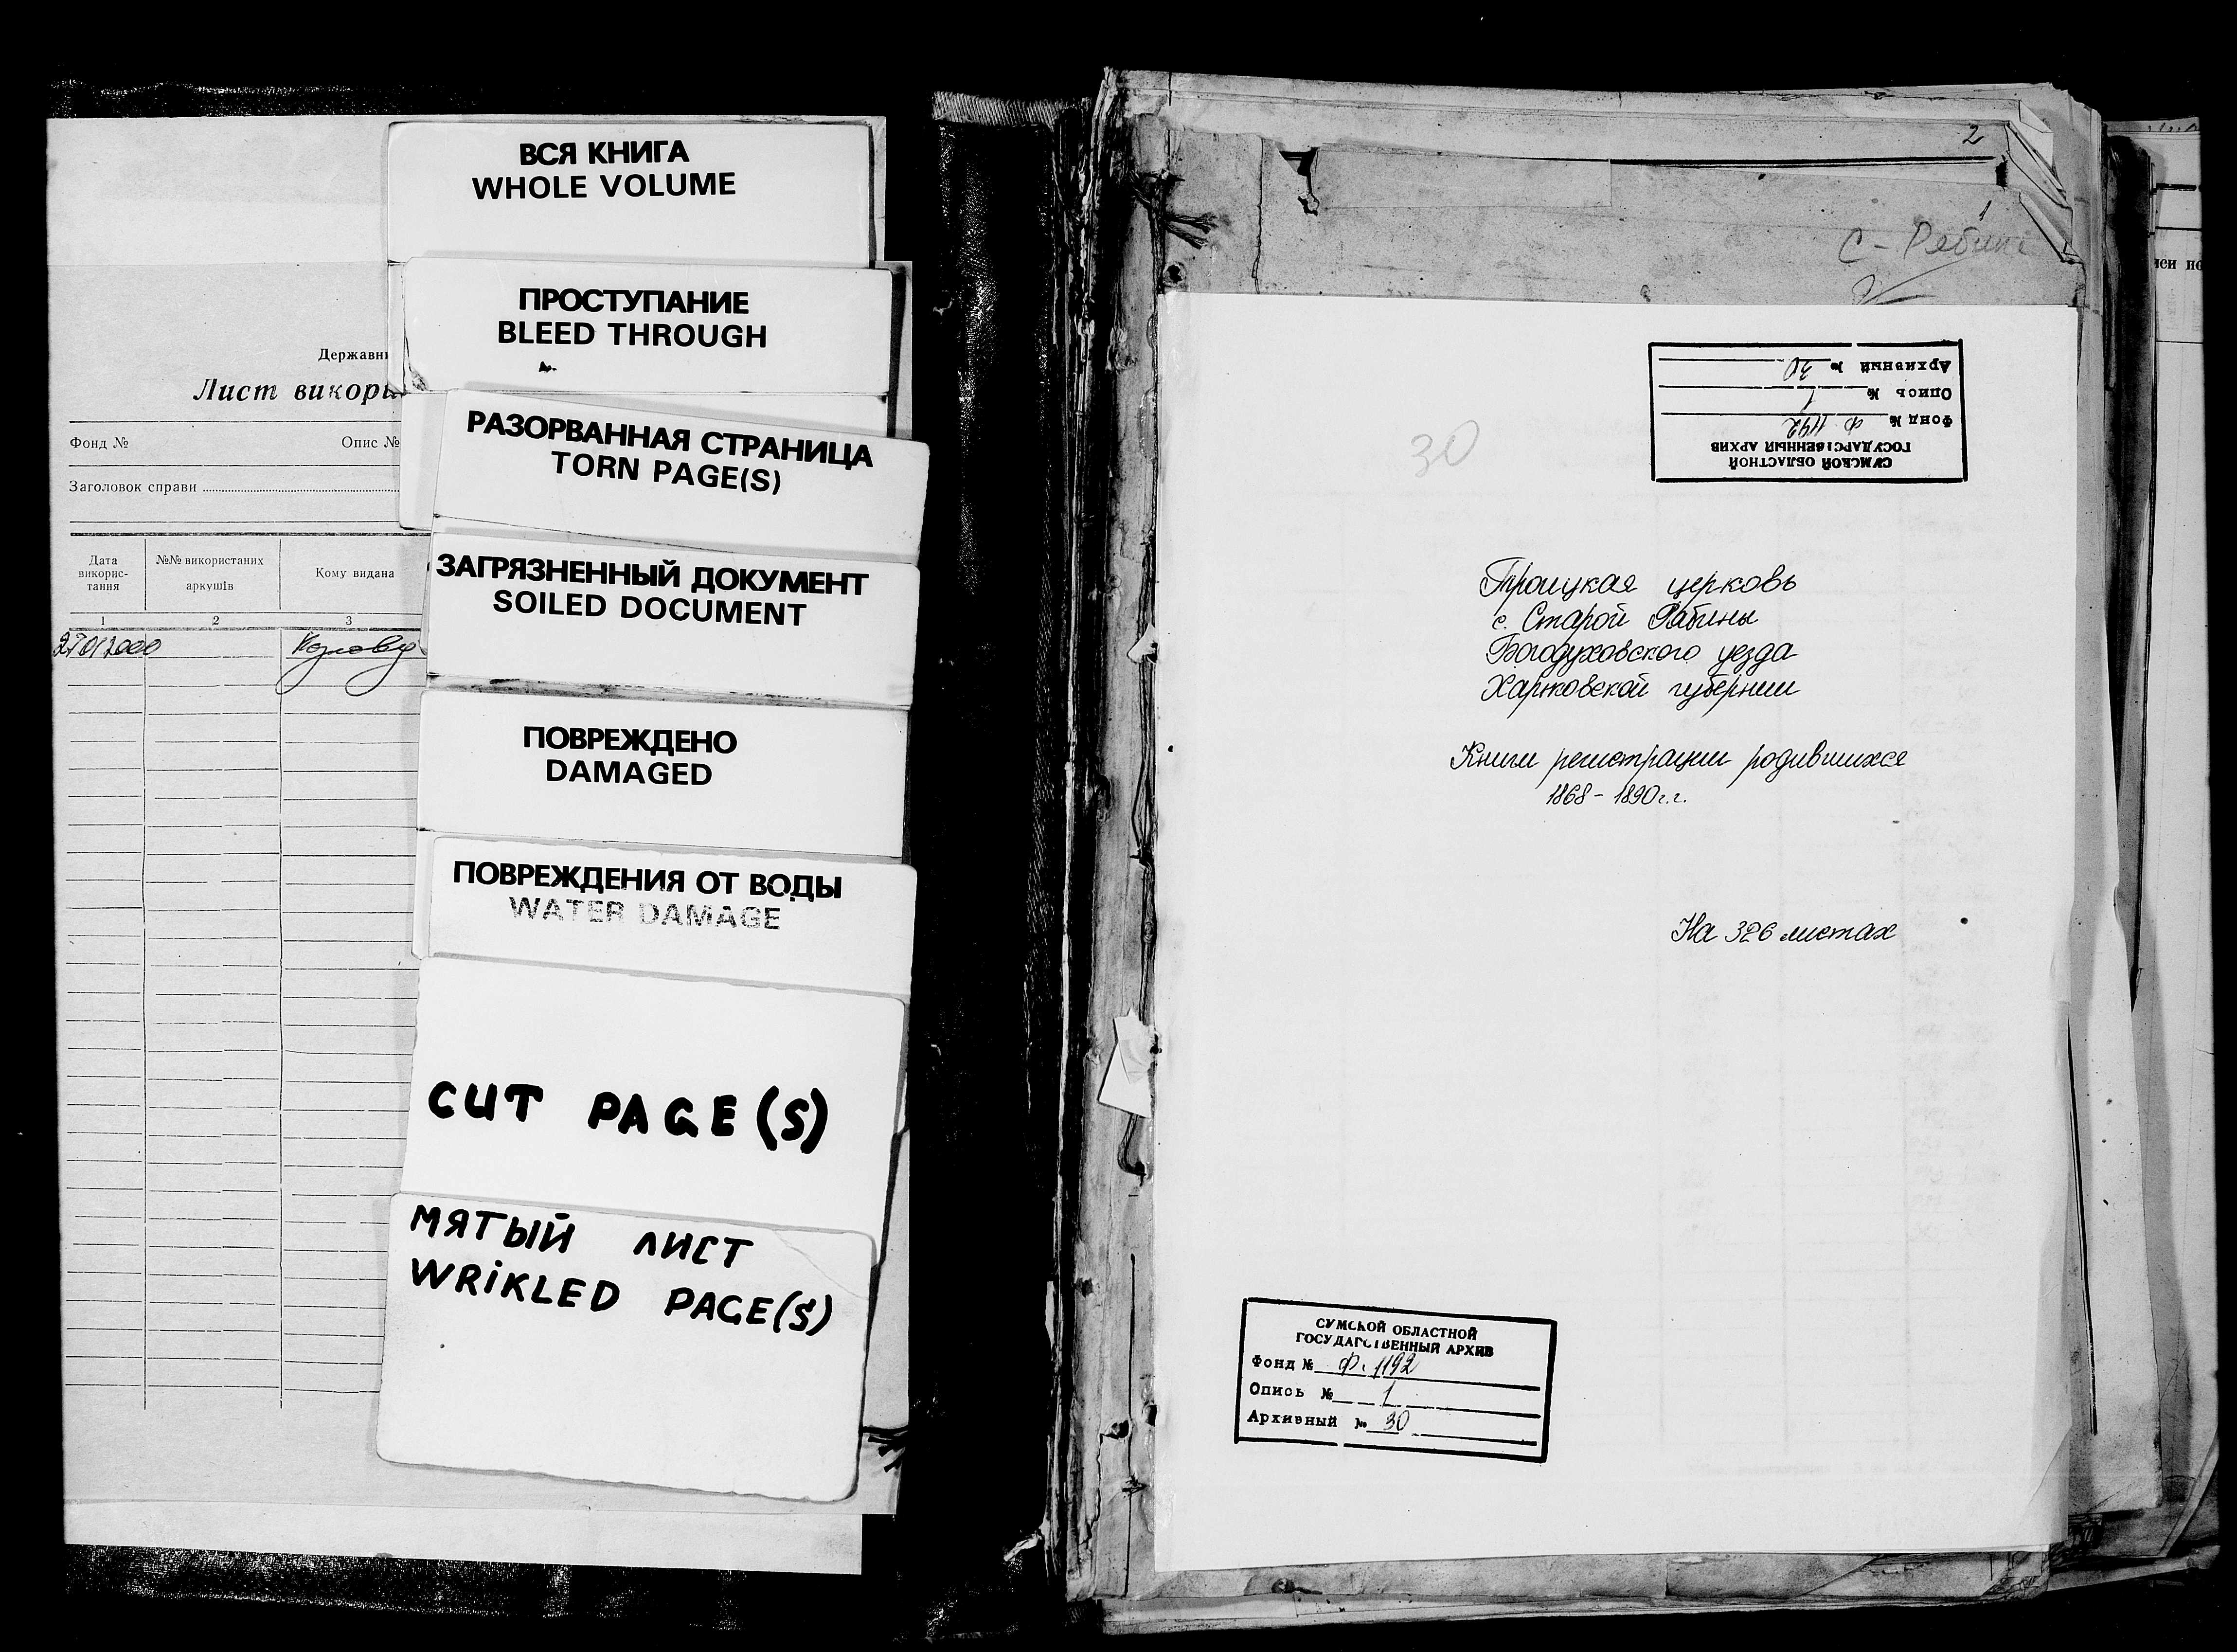 Державн
Лист викори
Фонд № Опис №
Заголовок справи
Дата використання
№№ використаних аркушів
Кому видана
1 2 3
ВСЯ КНИГА
WHOLE VOLUME
ПРОСТУПАНИЕ
BLEED THROUGH
РАЗОРВАННАЯ СТРАНИЦА
TORN PAGE(S)
ЗАГРЯЗНЕННЫЙ ДОКУМЕНТ
SOILED DOCUMENT
ПОВРЕЖДЕНО
DAMAGED
ПОВРЕЖДЕНИЯ ОТ ВОДЫ
WATER DAMAGE
CUT PAGE(S)
МЯТЫЙ ЛИСТ
WRIKLED PAGE(S)
2
1
30
СУМСКОЙ ОБЛАСТНОЙ
ГОСУДАРСТВЕННЫЙ АРХИВ
Фонд № Ф. 1192
Опись № 1
Архивный № 30
Троицкая церковь
с. Старой Рябины
Богодуховского уезда
Харьковской губернии
Книги регистрации родившихся
1868 - 1890 г.г.
На 326 листах
СУМСКОЙ ОБЛАСТНОЙ
ГОСУДАРСТВЕННЫЙ АРХИВ
Фонд № Ф. 1192
Опись № 1
Архивный № 30